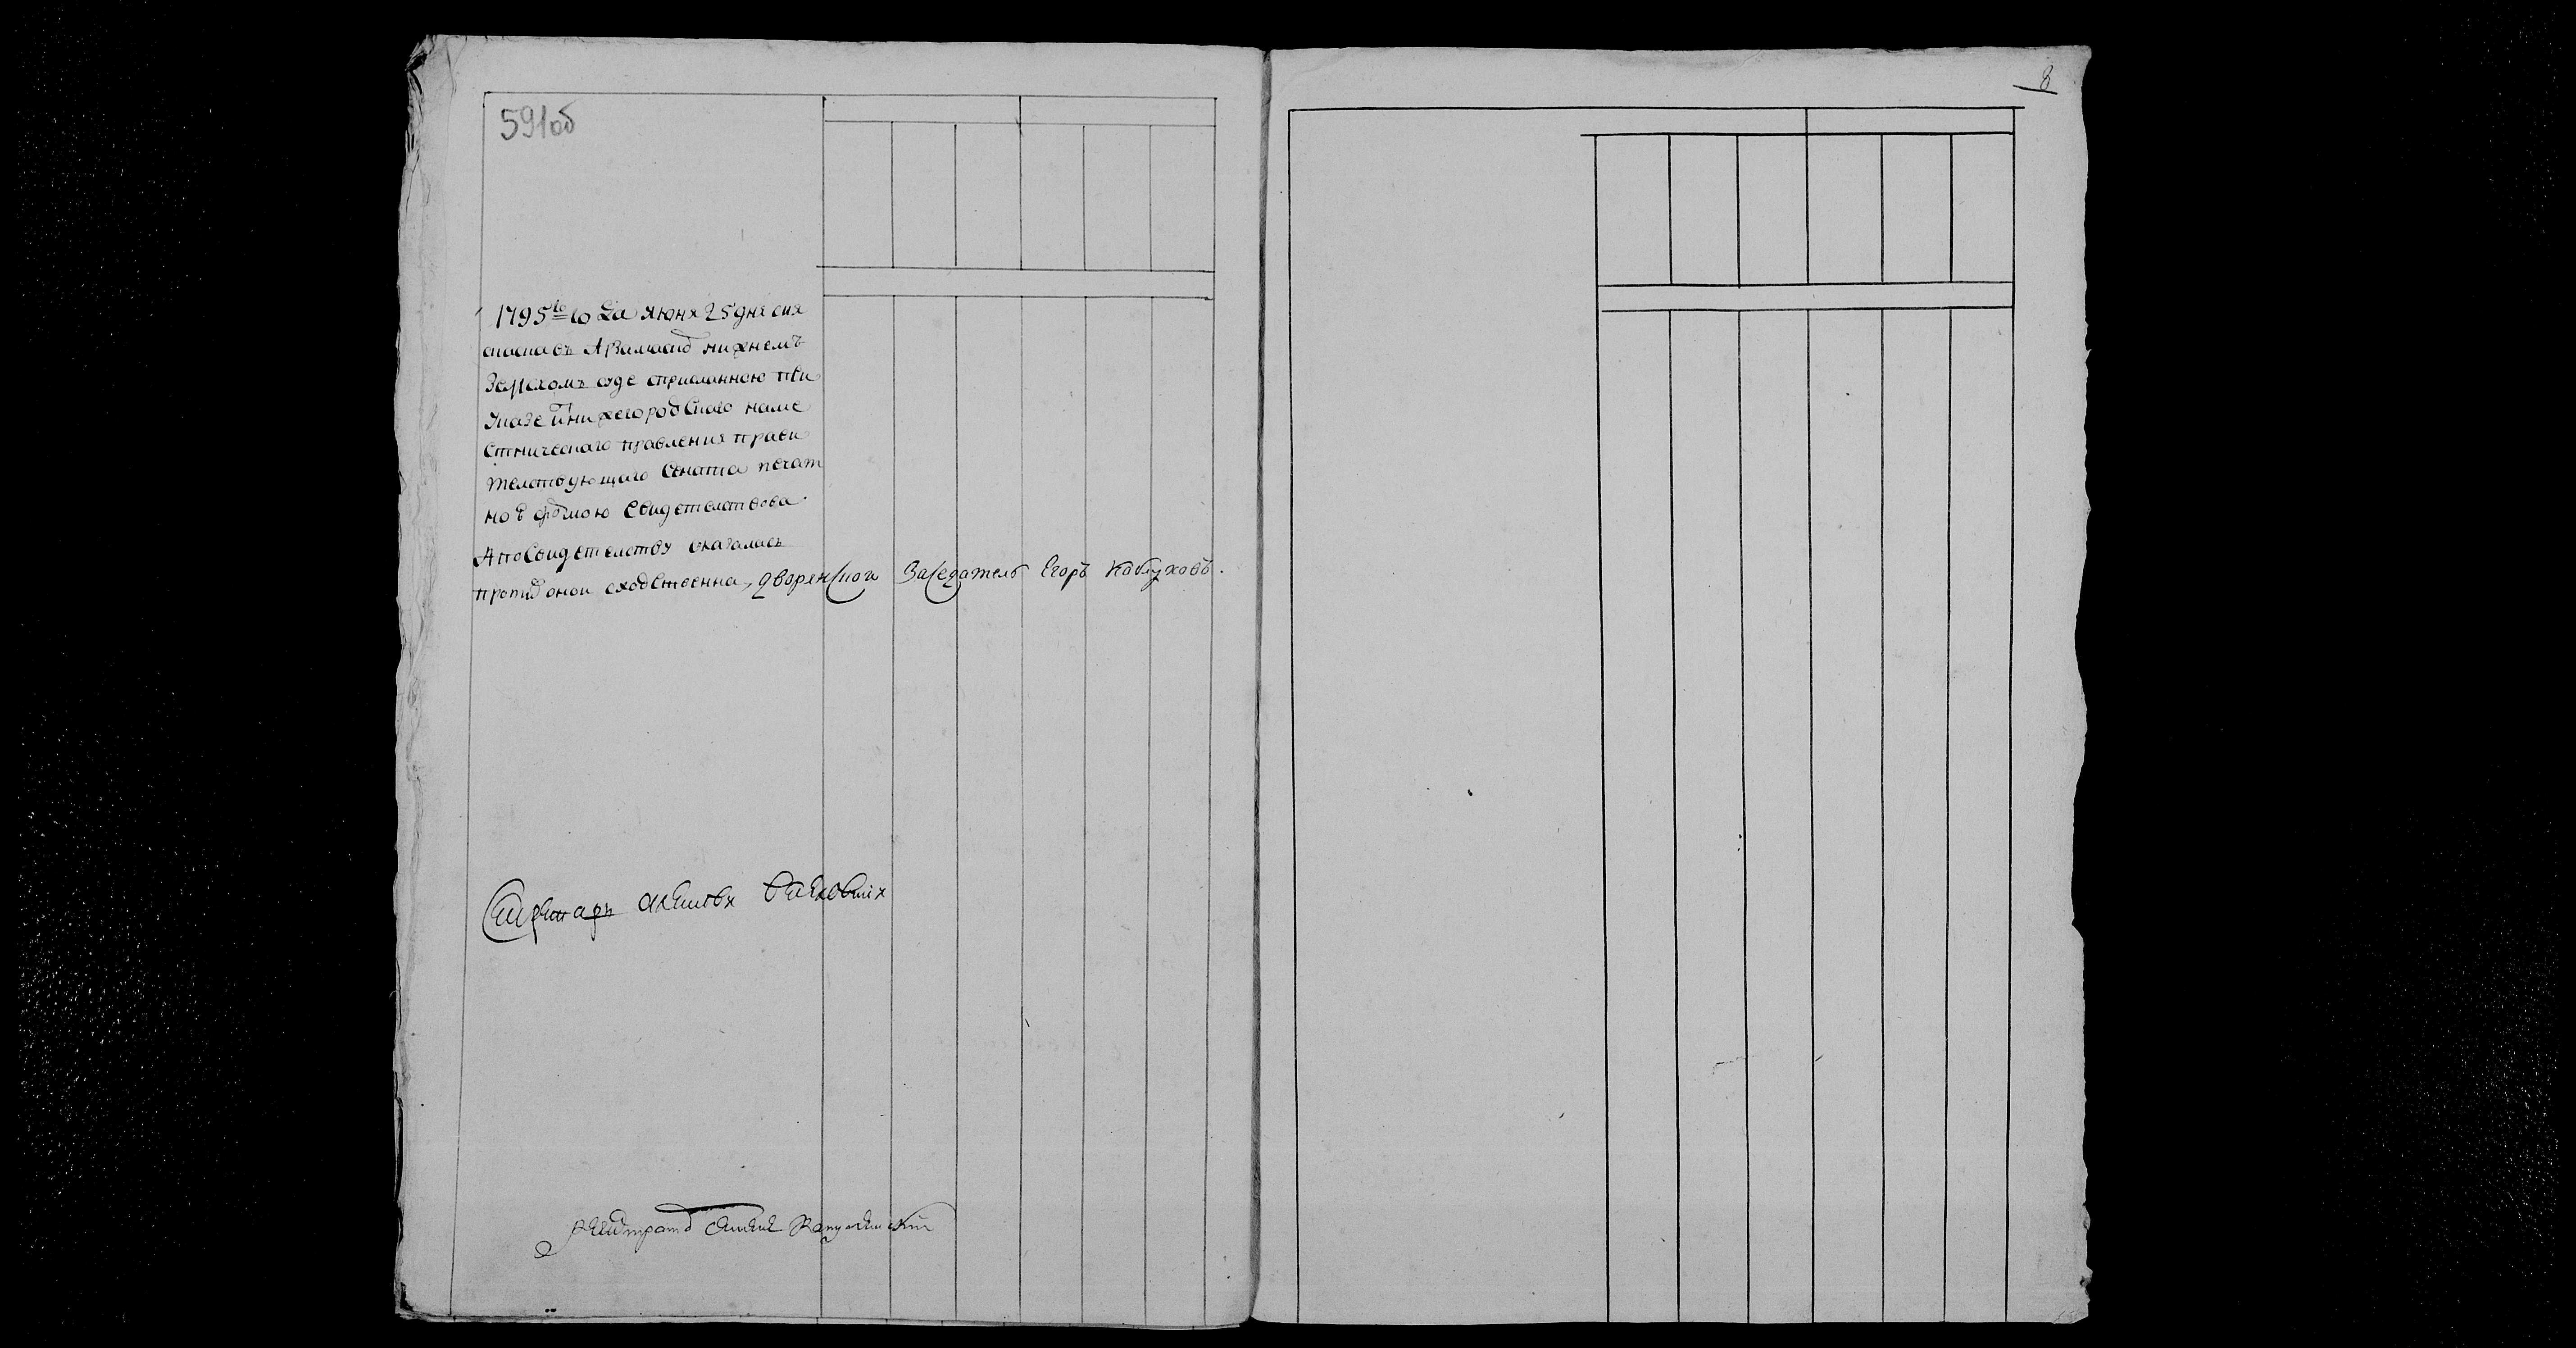 591об
8
1795го года июня 25 дня сия
сказка въ Арзамаско нижнемъ
Земскомъ суде с присланною при
Указе из нижегородскаго наме
стническаго правления прави
телствующаго Сената печат
ною формою Свидетелствова
А по Свидетелству оказалась
против оной сходственна, дворянской Заседатель Егоръ Каблуковъ.
Секретарь
Регистратор